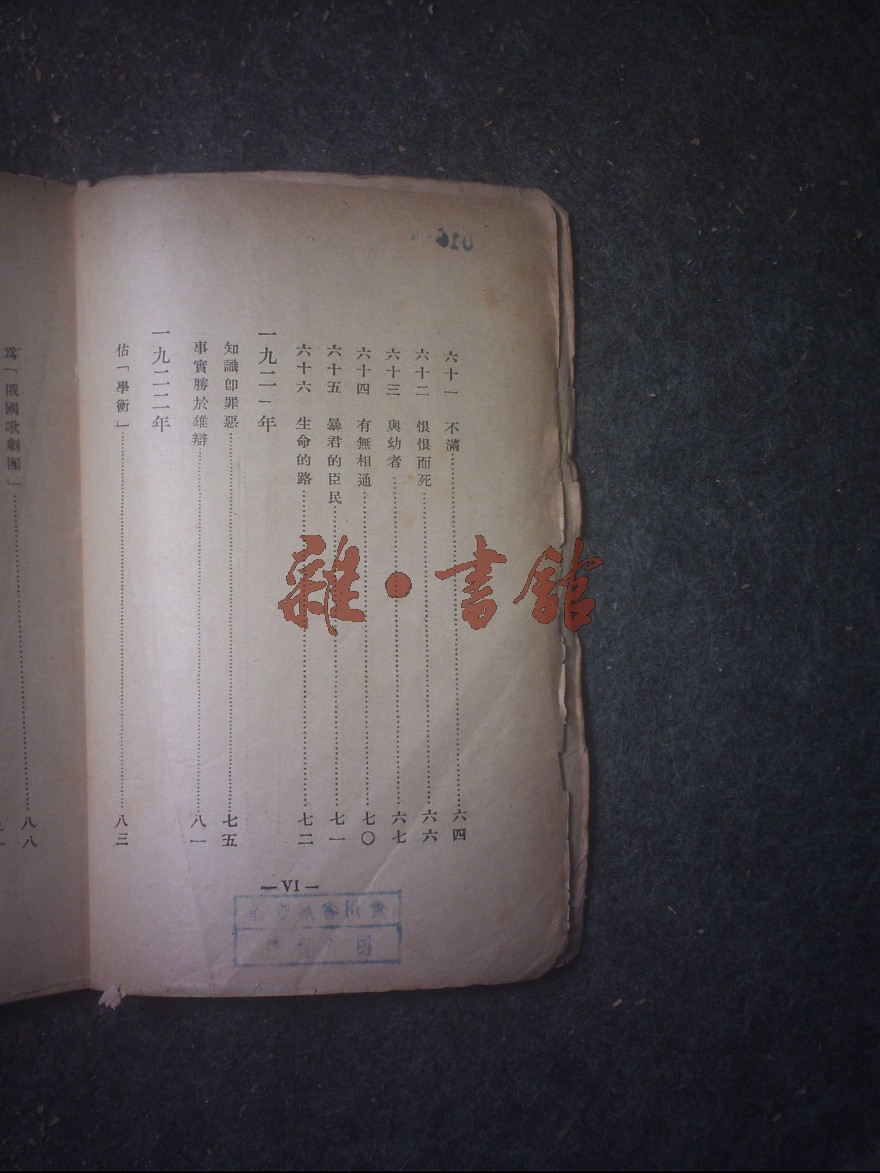 六十一 不滿……六四
六十二 恨恨而死……六六
六十三 與幼者……六七
六十四 有無相通……七〇
六十五 暴君的臣民……七一
六十六 生命的路……七二
一九二一年
知識卽罪惡……七五
事實勝於雄辯……八一
一九二二年
估「學衡」……八三
— VI —
爲「俄國歌劇團」……八八
雜·書館